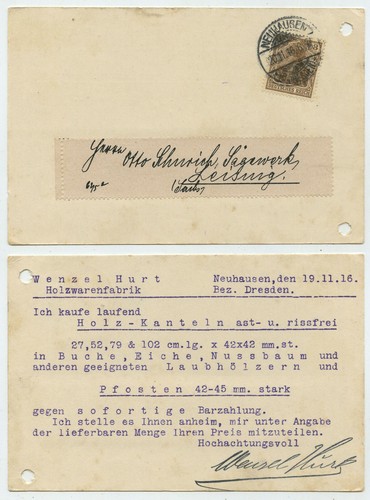 NEUHAUSEN
DEUTSCHES REICH
Herrn Otto Sägewerk,
Leisnig.
(Sachs)
Wenzel Hurt
Holzwarenfabrik
Neuhausen,den 19.11.16.
Bez. Dresden.
Ich kaufe laufend
Holz-Kanteln ast- u. rissfrei
27,52,79 & 102 cm.lg. x 42x42 mm.st.
in Buche, Eiche, Nussbaum und
anderen geeigneten Laubhölzern und
Pfosten 42-45 mm. stark
gegen sofortige Barzahlung.
Ich stelle es Ihnen anheim, mir unter Angabe
der lieferbaren Menge Ihren Preis mitzuteilen.
Hochachtungsvoll
Wenzel Hurt